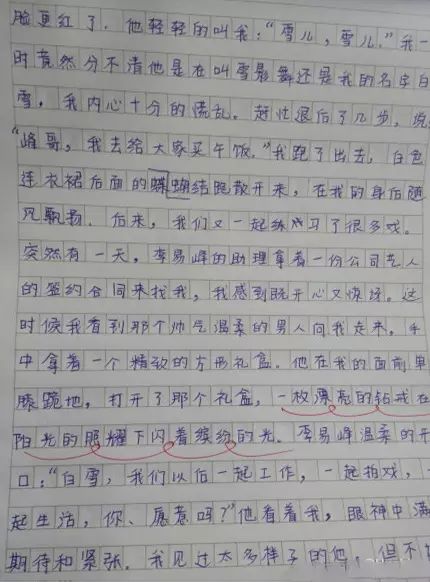 脸更红了。他轻轻的叫我："雪儿，雪儿。"我一
时竟然分不清他是在叫雪影舞还是我的名字白
雪。我内心十分的慌乱。赶忙退后了几步，说
"峰哥，我去给大家买午饭。"我跑了出去，白色
连衣裙后面的蝴蝶结跑散开来，在我的身后随
风飘扬。后来，我们又一起练习了很多戏。
突然有一天，李易峰的助理拿着一份公司艺人
的签约合同来找我，我感到既开心又惊讶。这
时候我看到那个帅气温柔的男人向我走来，手
中拿着一个精致的方形礼盒。他在我的面前单
膝跪地，打开了那个礼盒，一枚漂亮的钻戒在
阳光的照耀下闪着缤纷的光。李易峰温柔的开
口："白雪，我们以后一起工作，一起拍戏，一
起生活，你、愿意吗？"他看着我，眼神中满
期待和紧张。我见过太多样子的他，但不